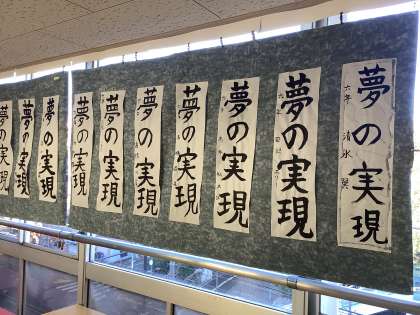 夢の実現
六年 清水 奨
夢の実現
六年
夢の実現
夢の実現
夢の実現
夢の実現
夢の実現
夢の実現
夢の実現
夢の実現